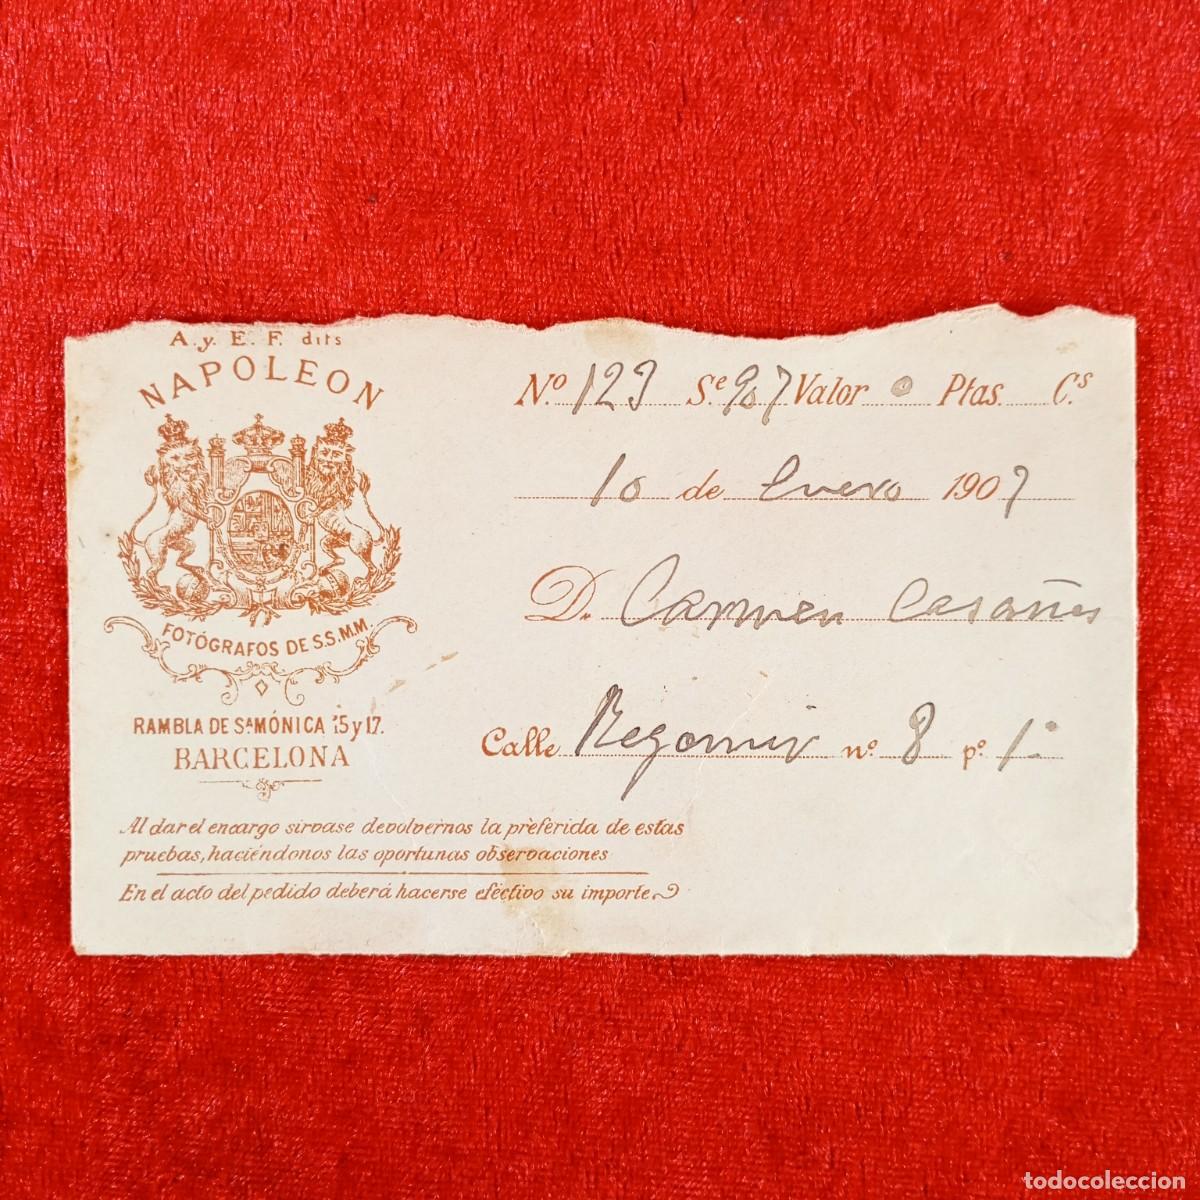 A. y. E. F. dits
NAPOLEON
FOTÓGRAFOS DE S.S.M.M.
RAMBLA DE Sª MÓNICA 15 y 17.
BARCELONA
Nº 123 Sᵉ 907 Valor 0 Ptas. Cˢ
10 de Enero 1907
D. Carmen Casañes
Calle Regomir nº 8 pº 1º
Al dar el encargo sirvase devolvernos la preferida de estas
pruebas, haciéndonos las oportunas observaciones
En el acto del pedido deberá hacerse eféctivo su importe.
todocoleccion